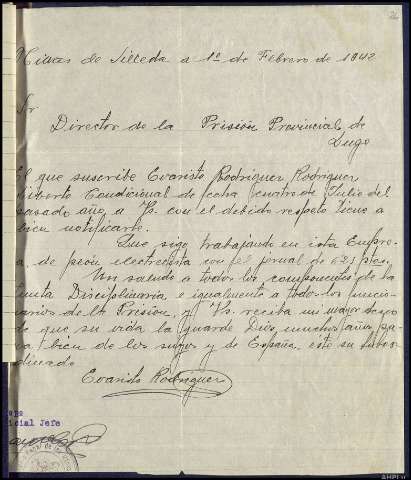 Minas de Silleda a 1º de Febrero de 1942
Sr
Director de la Prisión Provincial de
Lugo
El que suscribe Evaristo Rodriguez Rodriguez
liberto Condicional de fecha cuatro de Julio del
pasado año, a Vs. con el debido respeto tiene a
bien notificarle.
Que sigo trabajando en esta Empre-
sa de peón electrecista con el jornal de 6.25 ptas.
Un saludo a todos los componentes de la
Junta Disciplinaria, e igualmente a todos los funcio-
narios de la Prisión, y Vs. reciba un mayor deseo
de que su vida la guarde Dios muchos años pa-
ra bien de los suyos y de España, este su subor-
dinado
Evaristo Rodriguez
icial Jefe
AHPLu